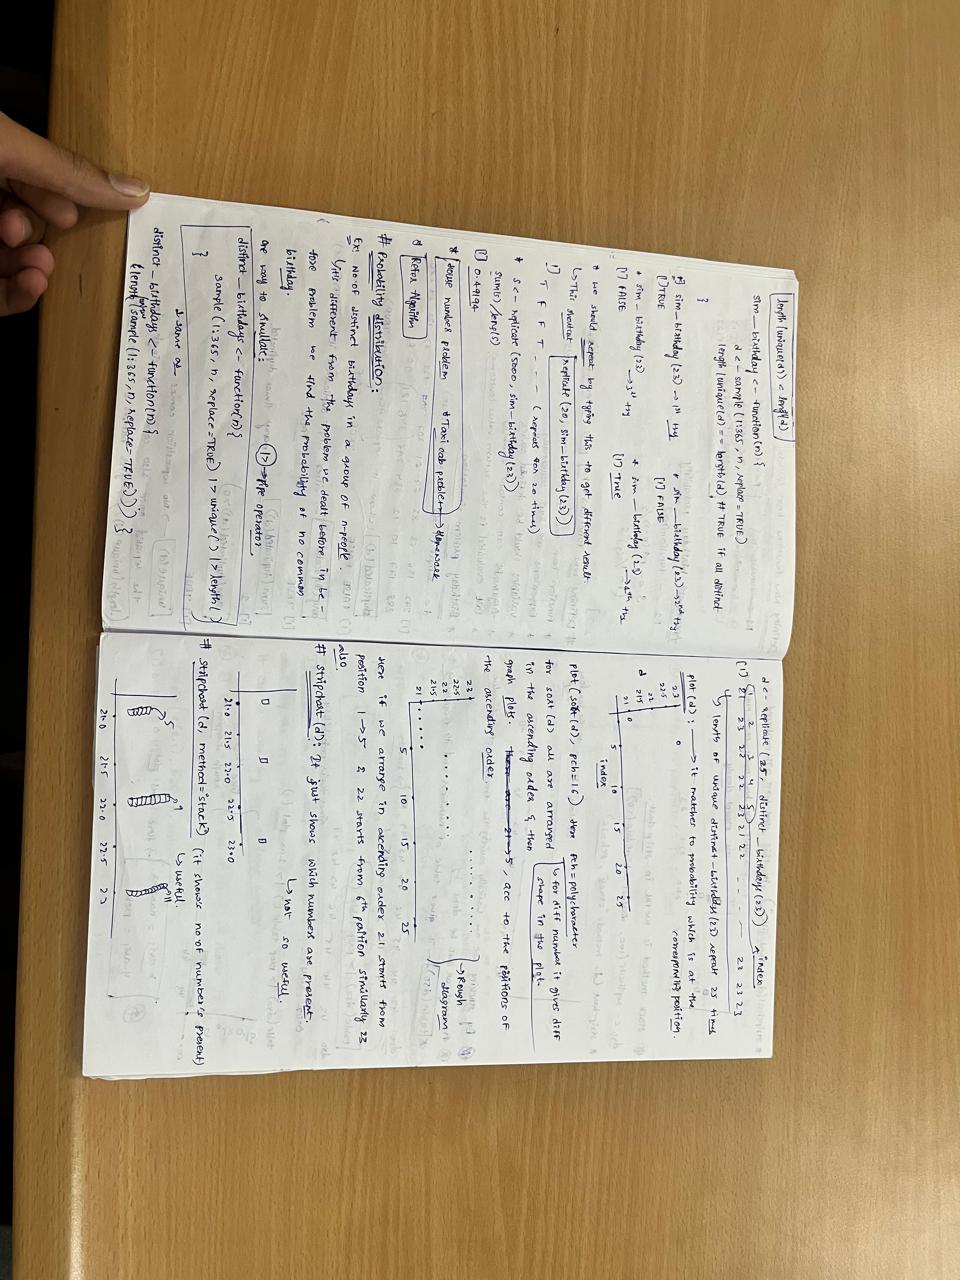 length(unique(d)) < length(d)
sim_birthday <- function(n) {
d <- sample (1:365, n, replace = TRUE)
length (unique(d) == length(d) # TRUE if all distinct
}
sim_birthday (23) → 1st try
[1] TRUE
* sim_birthday (23) → 2nd try
[1] FALSE
* sim_birthday (23) → 3rd try
[1] FALSE
* sim_birthday (23) → 4th try
[1] True
* we should repeat by typing this to get different result
↳ This replicate (20, sim-birthday (23))
[1] T F F T - - - (repeats for 20 times)
* S <- replicate (5000, sim-birthday (23))
sum(s) / leng(s)
[1] 0.49194
* problem * Taxi cab problem → Homework
* Algorithm
# Probability distribution:
Ex: No. of distinct birthdays in a group of n-people.
↳ it's different from the problem we dealt before in be-
fore problem we find the probability of no common
birthday.
are way to simulate: |> → pipe operator
distinct_birthdays <- function(n) {
sample (1:365, n, replace = TRUE) |> unique() |> length()
}
↕ same as
distinct_birthdays <- function(n) {
{length (sample (1:365, n, replace = TRUE))) }
d <- replicate (25, distinct_birthdays (23)) index
[1] 1 2 3 4 5
21 23 22 22 23 21 22 - - - 23 23 23
↳ length of unique distinct-birthday (23) repeat 25 times
plot (d): → it matches to probability which is at the
corresponding position.
23
22.5
22
21.5
21
d
0 5 10 15 20 25
index
plot (sort (d), pch=16) then pch=polycharacter
for sort (d) all are arranged ↳ for diff number it gives diff
in the ascending order & then shape in the plot.
graph plots. acc to the positions of
the ascending order.
23
22.5
22
21.5
21
5 10 15 20 25
→ Rough diagram
Here if we arrange in ascending order 21 starts from
position 1 → 5 & 22 starts from 6th position similarly 23
also.
# stripchart (d): It just shows which numbers are present
↳ not so useful.
21.0 21.5 22.0 22.5 23.0
# stripchart (d, method="stack") (it shows no of number's present)
↳ useful.
5 9 11
21.0 21.5 22.0 22.5 23